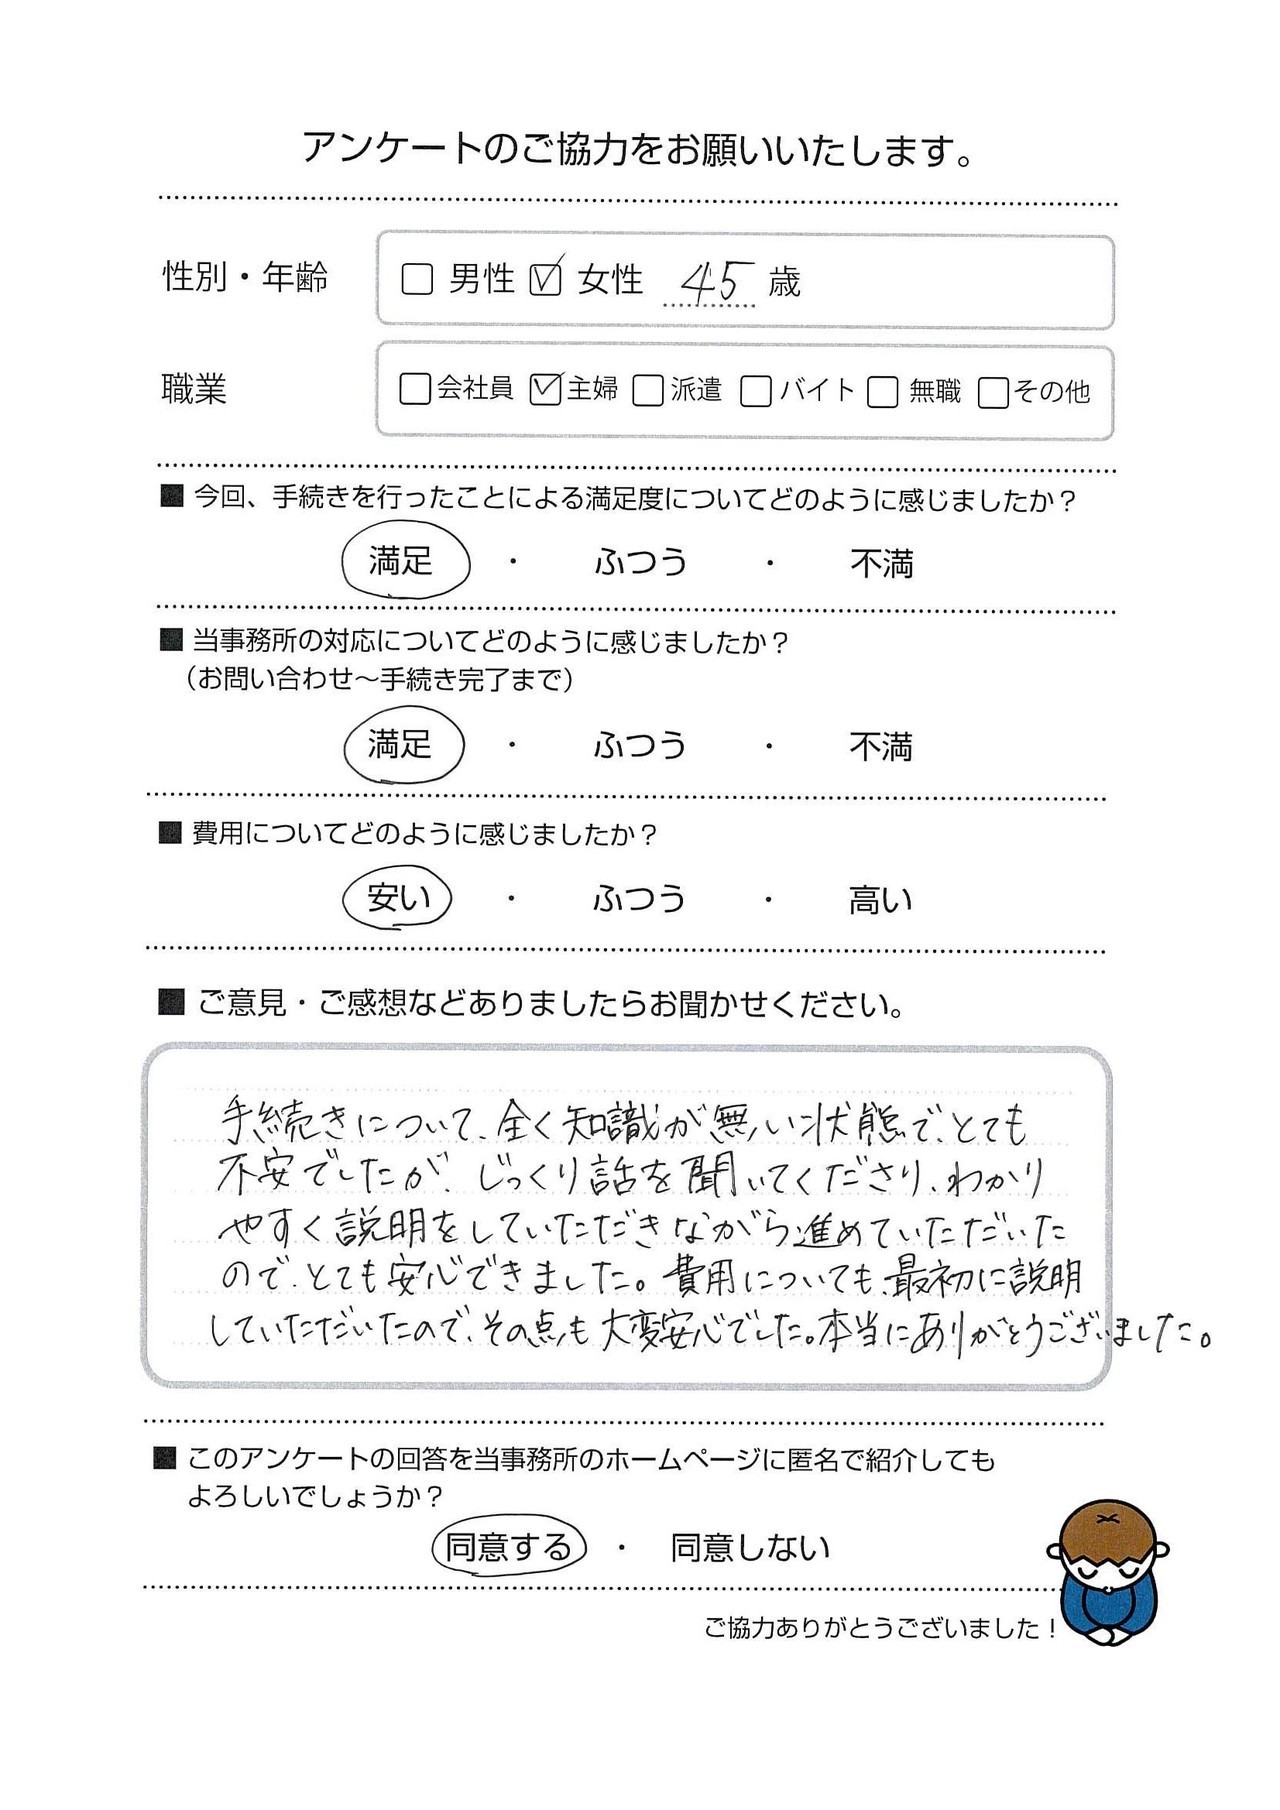 アンケートのご協力をお願いいたします。
性別・年齢 □ 男性 ☑ 女性 45 歳
職業 □会社員 ☑主婦 □派遣 □バイト □ 無職 □その他
■ 今回、手続きを行ったことによる満足度についてどのように感じましたか？
満足 ・ ふつう ・ 不満
■ 当事務所の対応についてどのように感じましたか？
（お問い合わせ～手続き完了まで）
満足 ・ ふつう ・ 不満
■ 費用についてどのように感じましたか？
安い ・ ふつう ・ 高い
■ ご意見・ご感想などありましたらお聞かせください。
手続きについて、全く知識が無い状態で、とても
不安でしたが、じっくり話を聞いてくださり、わかり
やすく説明をしていただきながら進めていただいた
ので、とても安心できました。費用についても、最初に説明
していただいたので、その点も大変安心でした。本当にありがとうございました。
■ このアンケートの回答を当事務所のホームページに匿名で紹介しても
よろしいでしょうか？
同意する ・ 同意しない
ご協力ありがとうございました！